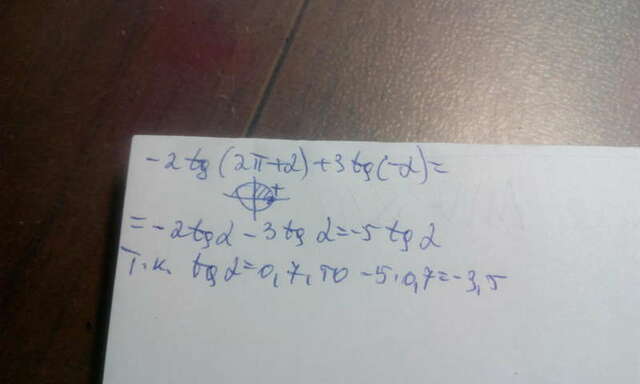 -2 tg (2π+α) + 3 tg (-α) =
+
= -2 tg α - 3 tg α = -5 tg α
Т.к. tg α = 0,7, то -5·0,7 = -3,5